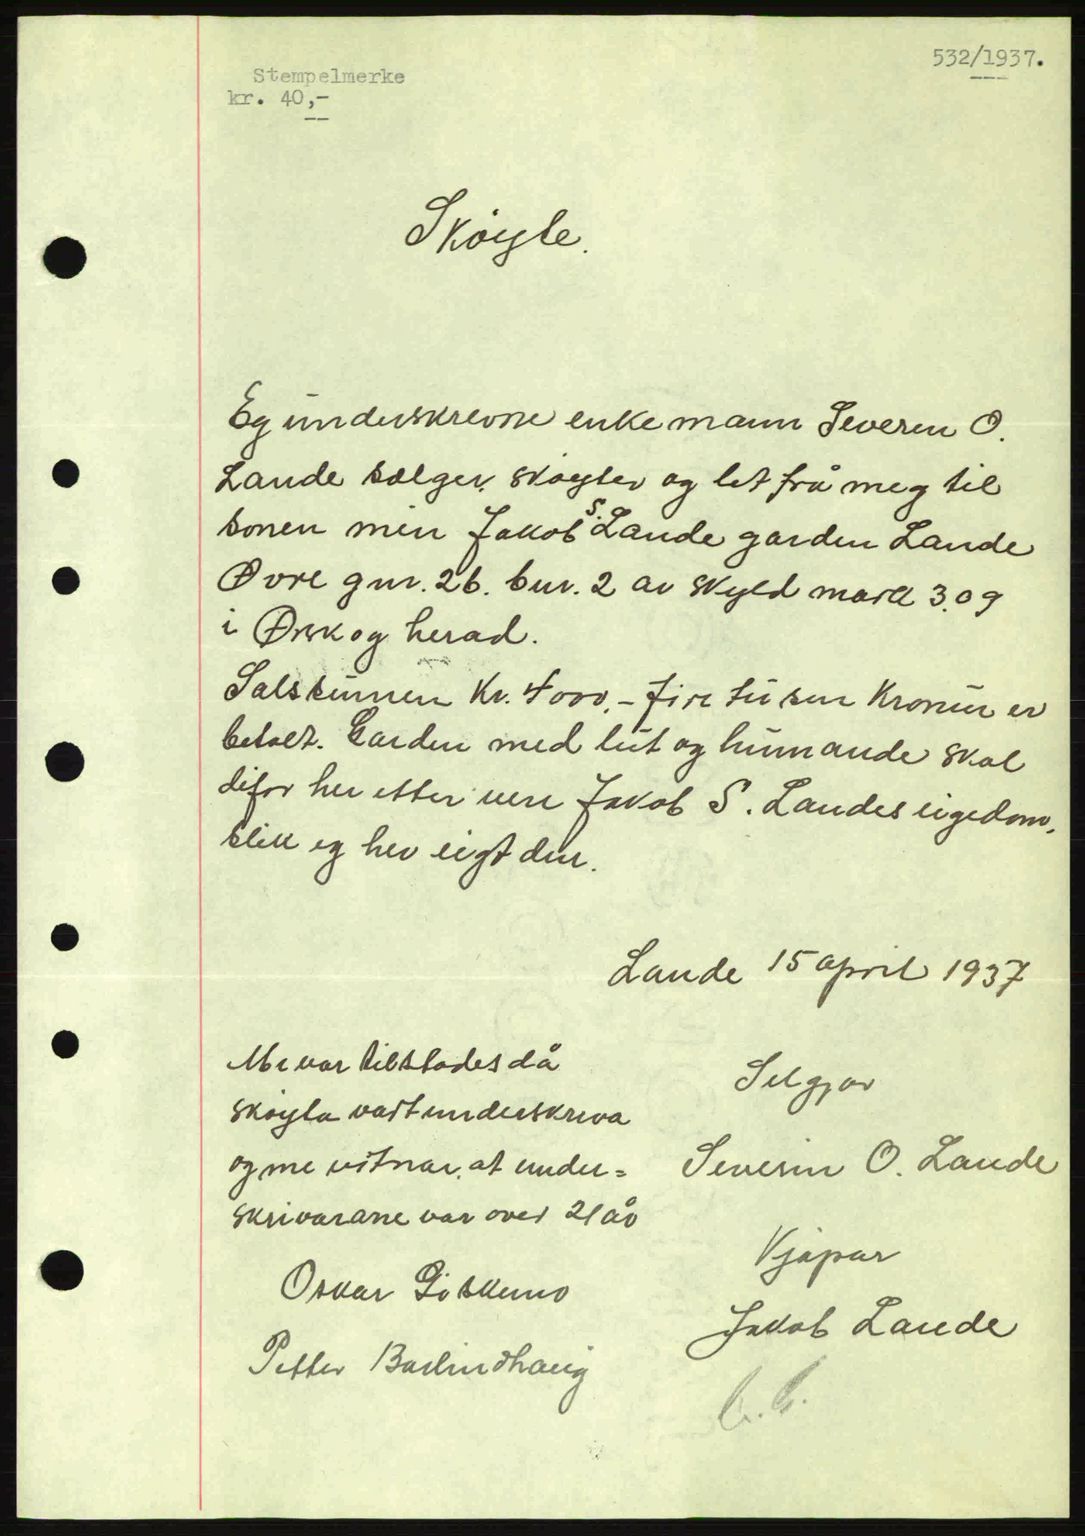 532/1937.
Stempelmerke
kr. 40,-
Skøyte.
Eg underskrevne enkemann Severin O.
Lande sælger, skøyter og let frå meg til
sonen min Jakob S. Lande garden Lande
Øvre gnr. 26. bnr. 2 av skyld mark 3.09
i Ørskog herad.
Salssummen Kr. 4000,- fire tusen Kronur er
betalt. Garden med lut og hunnande skal
difor her etter vere Jakob S. Landes eigedom,
slik eg hev eigt den.
Lande 15 april 1937
Me var tilstades då
skøyta vart underskreva
og me vitnar, at under=
skrivarane var over 21 år
Seljar
Severin O. Lande
Kjøpar
Jakob Lande
Oskar
Petter Barlindhaug